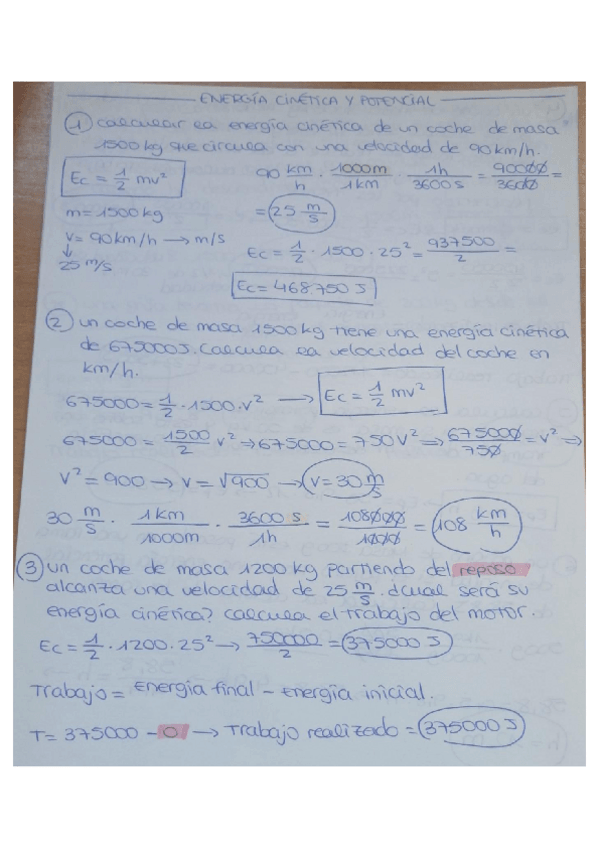 ENERGÍA CINÉTICA Y POTENCIAL
① Calcular la energía cinética de un coche de masa
1500 kg que circula con una velocidad de 90 km/h.
Ec = 1/2 mv² 90 km/h · 1000m/1km · 1h/3600s = 90000/3600 =
m = 1500 kg = 25 m/s
v = 90 km/h → m/s
↓
25 m/s Ec = 1/2 · 1500 · 25² = 937500/2 =
Ec = 468.750 J
② un coche de masa 1500 kg tiene una energía cinética
de 675000 J. Calcula la velocidad del coche en
km/h.
675000 = 1/2 · 1500 · v² → Ec = 1/2 mv²
675000 = 1500/2 v² → 675000 = 750 v² → 675000/750 = v² →
v² = 900 → v = √900 → v = 30 m/s
30 m/s · 1km/1000m · 3600 s/1h = 108000/1000 = 108 km/h
③ un coche de masa 1200 kg partiendo del reposo
alcanza una velocidad de 25 m/s. ¿cual será su
energía cinética? Calcula el trabajo del motor.
Ec = 1/2 · 1200 · 25² → 750000/2 = 375000 J
Trabajo = Energía final - Energía inicial.
T = 375000 - 0 → Trabajo realizado = 375000 J